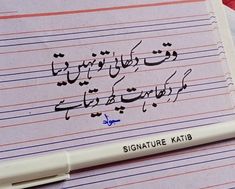 وقت دکھائی تو نہیں دیتا
مگر دکھا بہت کچھ دیتا ہے
SIGNATURE KATIB